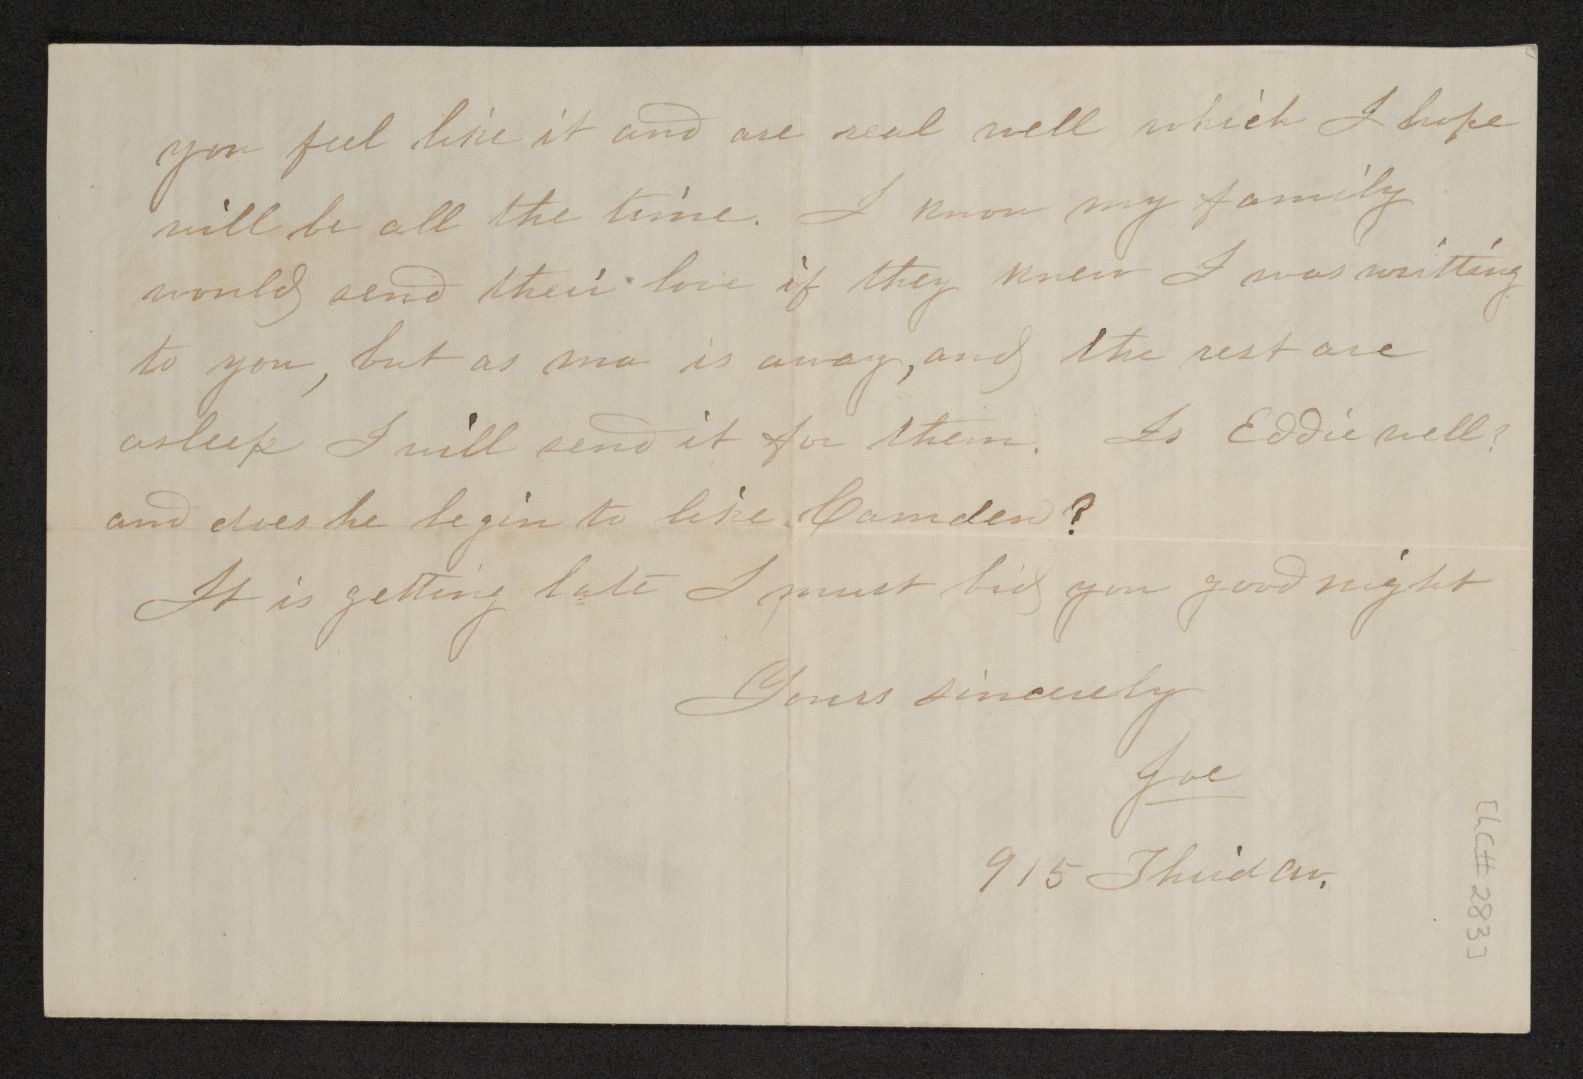 you feel like it and are real well which I hope
will be all the time. I know my family
would send their love if they knew I was writting
to you, but as ma is away, and the rest are
asleep I will send it for them. Is Eddie well?
and does he begin to like Camden?
It is getting late I must bid you good night
Yours sincerely
Joe
915 Third Av.
[LC# 283]